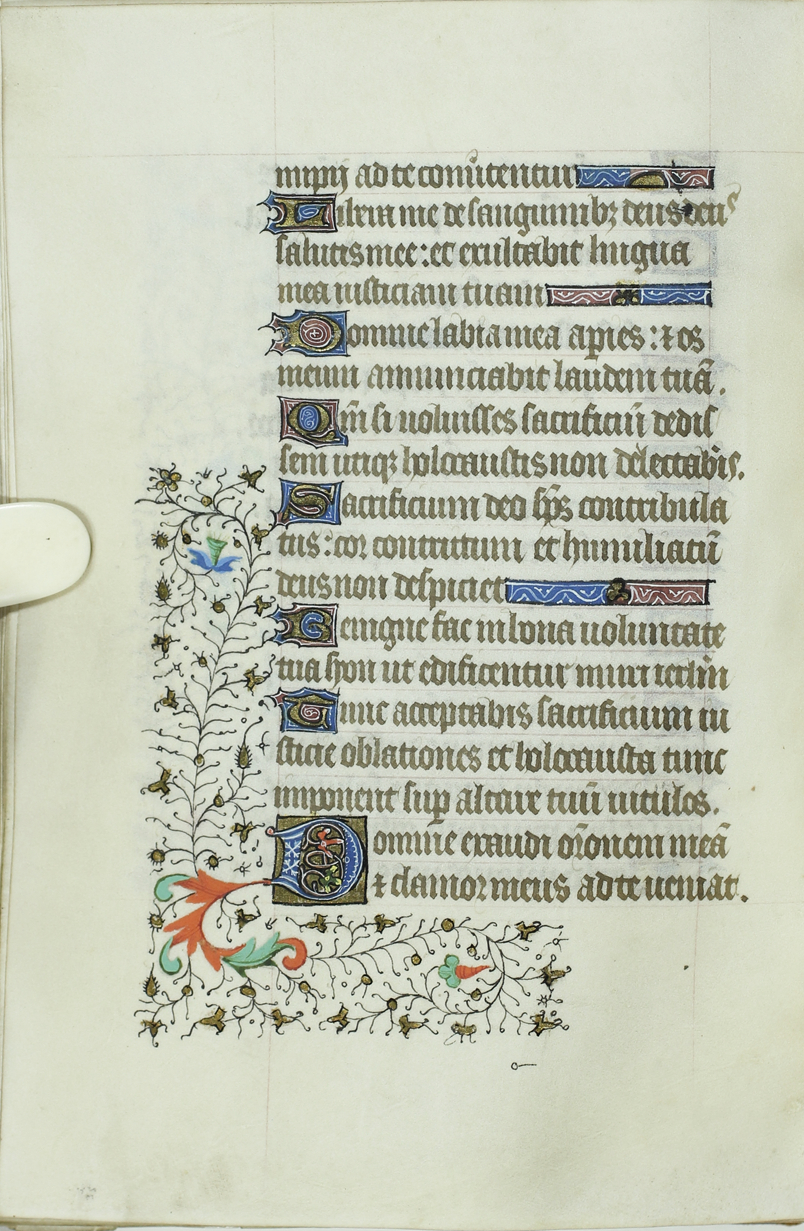 impij ad te conũtentur
Libera me de sanguinibꝫ deus deus
salutis mee : et exultabit lingua
mea iusticiam tuam
Domine labia mea apies : ⁊ os
meum annunciabit laudem tuã.
Qm̃ si uoluisses sacrificiũ dedis
sem utiqꝫ holocaustis non delectabis.
Sacrificium deo sp̃s contribula
tus : cor contritum et humiliatũ
deus non despiciet
Benigne fac in bona uoluntate
tua syon ut edificentur muri ierl̃m
Tunc acceptabis sacrificium iu
sticie oblationes et holocausta tunc
imponent sup altare tuũ uitulos.
Domine exaudi or̃onem meã
⁊ clamor meus ad te ueniat.